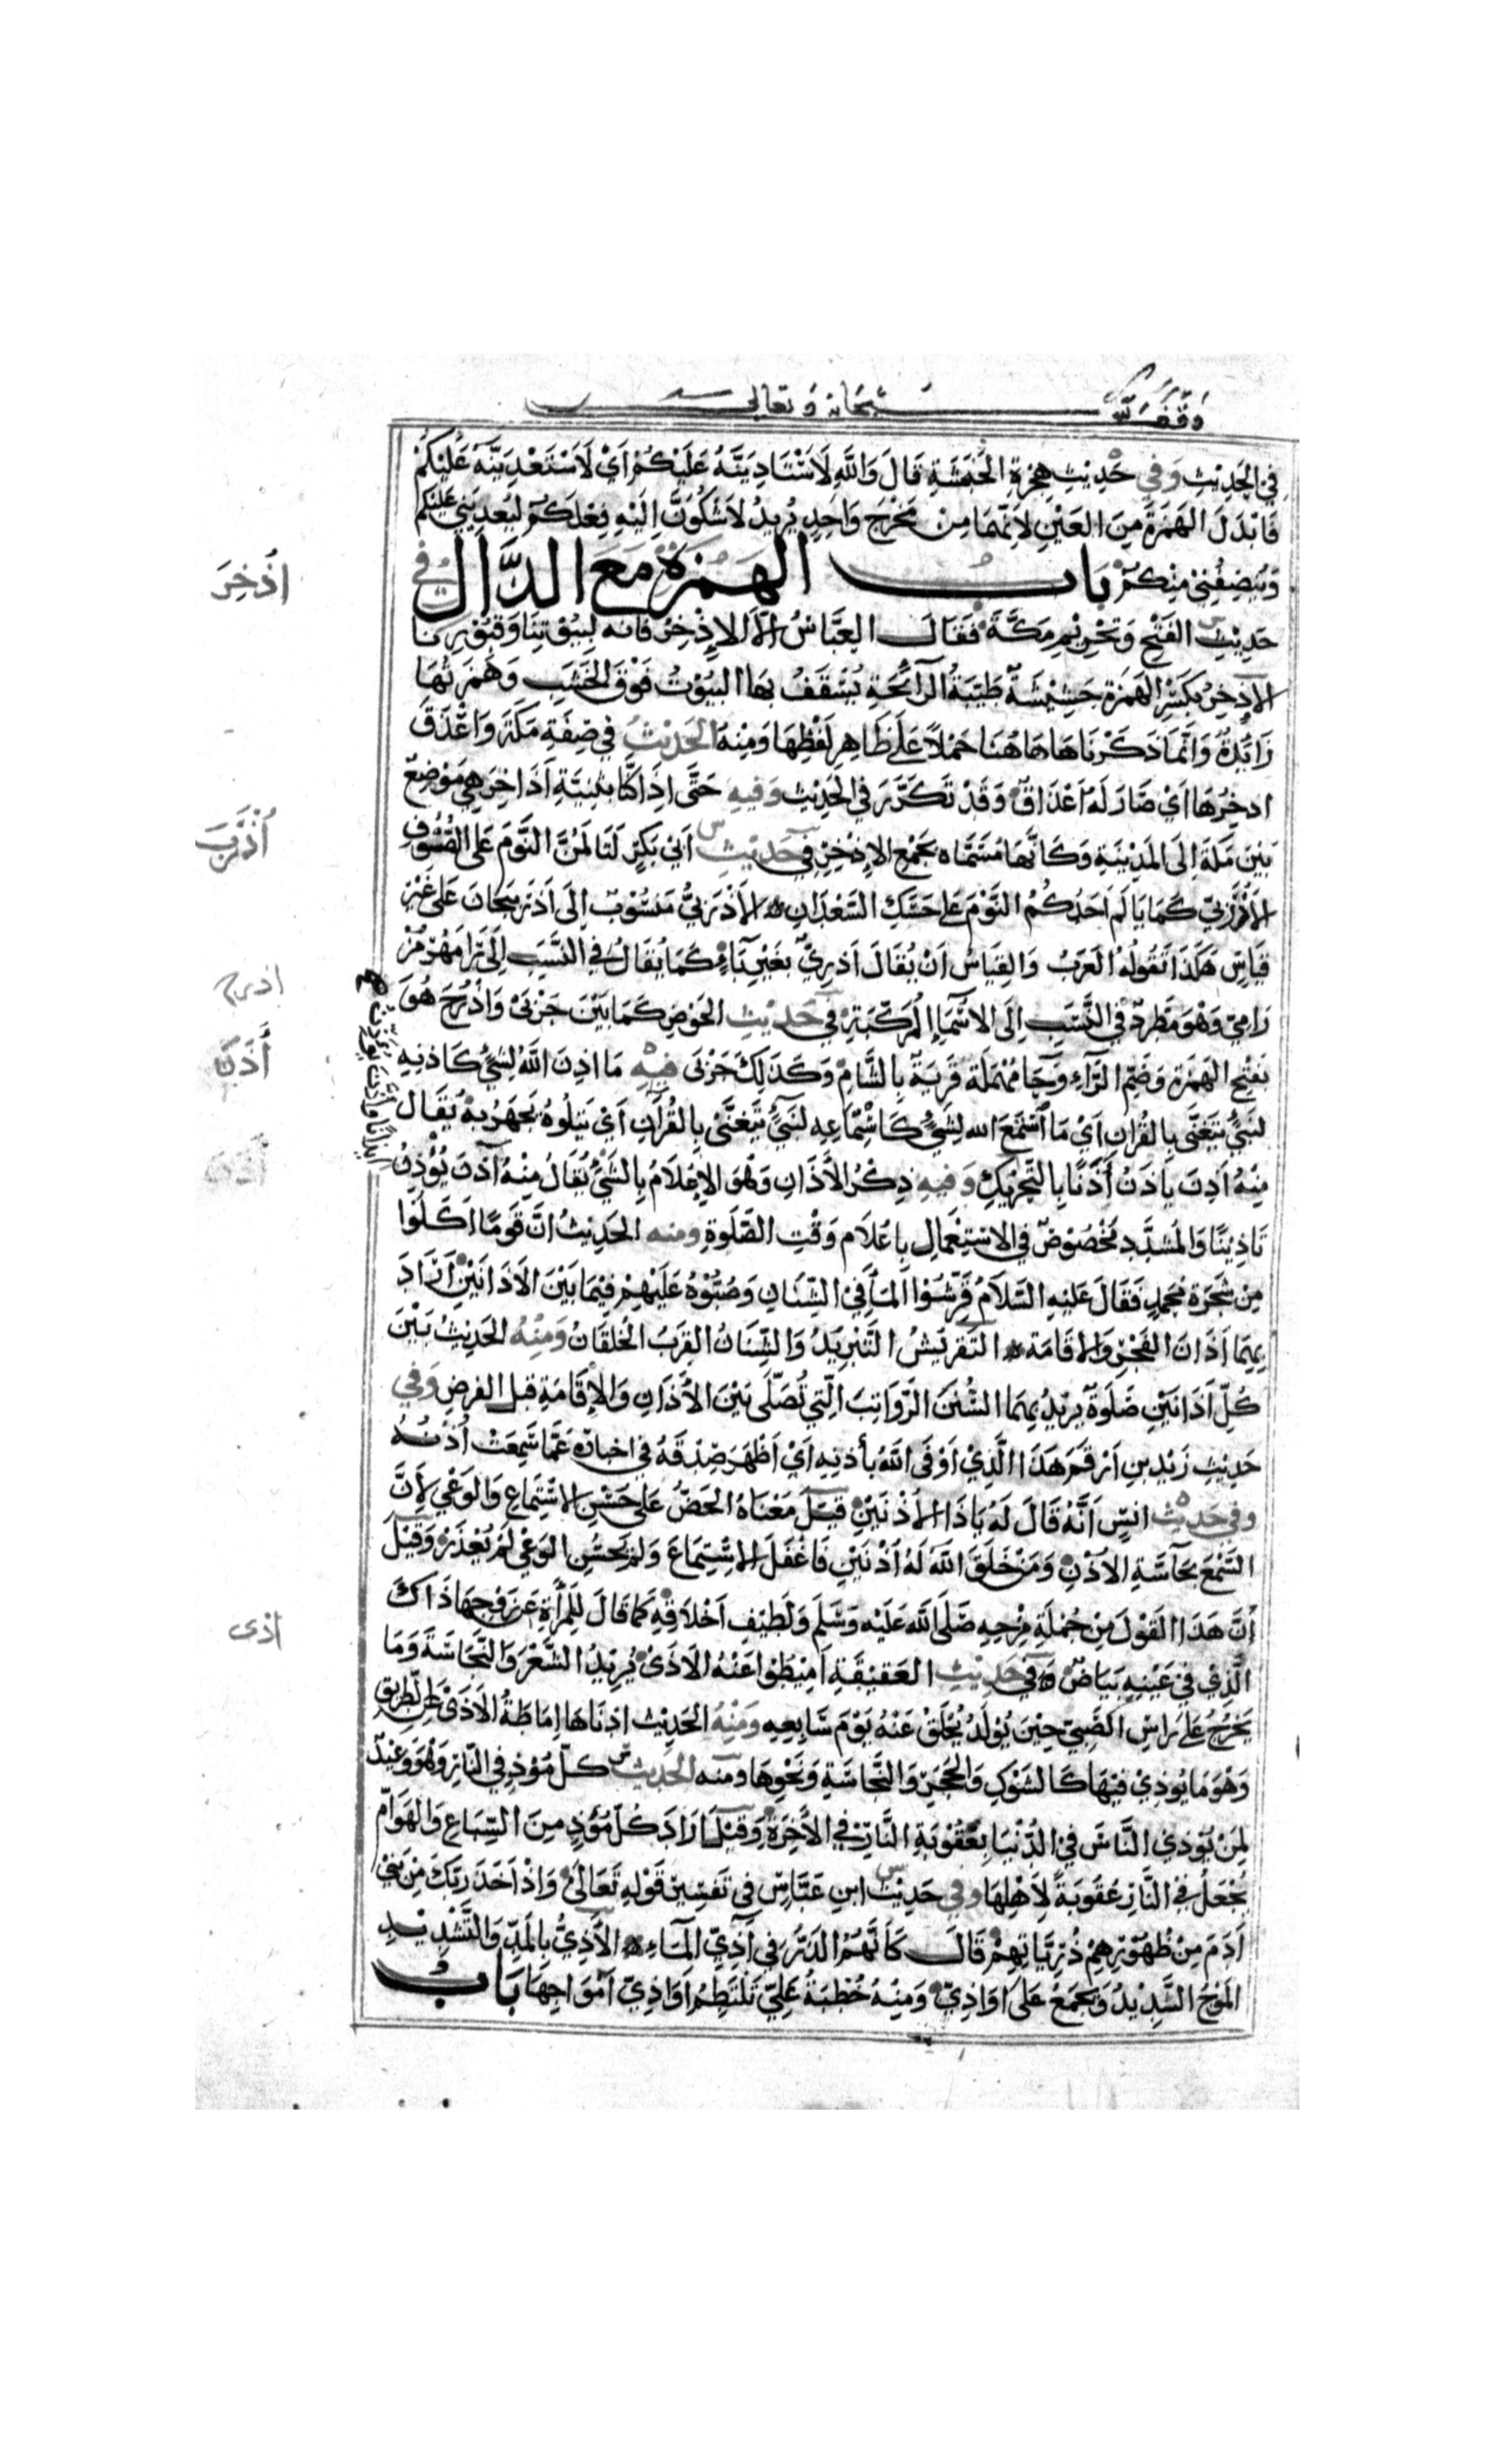 وقف لله سبحانه وتعالى
في الحَدِيْثِ وَفي حَدِيْثِ هِجْرَةِ الحَبَشَةِ قَالَ وَاللهِ لَاَسْتَادِيَنَّهُ عَلَيْكُمْ اَيْ لَاَسْتَعْدِيَنَّهُ عَلَيْكُمْ
فَابْدَلَ الهَمزَةَ مِنَ العَيْنِ لِاَنَّهُمَا مِنْ مَخْرَجٍ وَاحِدٍ يُرِيدُ لَاَشْكُوَنَّ اِلَيْهِ فِعْلَكُمْ لِيُعْدِيَنِي عَلَيْكُمْ
وَيُنْصِفُنِي مِنْكُمْ بَابُ الهَمْزَةِ مَعَ الذَّالِ في
حَدِيْثِ الفَتْحِ وَتَحْرِيْمِ مَكَّةَ فَقَالَ العَبَّاسُ اِلَّا الاِذْخِرَ فَانه لِبُيُوْتِنَا وَقُبُوْرِنَا
الاذخِرُ بِكَسْرِ الهَمَزَة حَشِيْشَةٌ طَيِّبَةُ الرَّائِحَةِ يُسْقَفُ بِهَا البُيُوْتُ فَوْقَ الخَشَبِ وَهَمزَتُهَا
زَائِدَةٌ وَاِنَّمَا ذَكَرْنَاهَا هَاهُنَا حَمْلًا عَلَى ظَاهِرِ لَفْظِهَا وَمِنْهُ الحَدِيْثُ في صِفَةِ مَكَّةَ وَاعْذَقَ
اذخِرُهَا اَيْ صَارَ لَهُ اَعْذَاقٌ وَقَدْ تَكَرَّرَ في الحَدِيْثِ وَفيهِ حَتَّى اذَا كُنَّا بثَنِيَّةِ اَذَاخِرَ هِيَ مَوْضِعٌ
بَيْنَ مَكَّةَ اِلَى المَدِيْنَةِ وَكَانَّهَا مُسَمَّاه بجَمْعِ الاِذْخِرِ في حَدِيْثِ اَبي بَكْرٍ لَتَالَمُنَّ النَّوْمَ عَلى الصُّوْفِ
الاَذْرَبيِّ كَمَا يَالَمُ اَحَدُكُمُ النَّوْمَ عَلى حَسَكِ السَّعْدَانِ الاَذْرَبيُّ مَنْسُوْبٌ اِلَى اَذْرَبِيجَانَ عَلى غَيْرِ
قِيَاسٍ هَكَذَا تَقُولُهُ العَرَبُ وَالقِيَاسُ اَنْ يُقَالَ اَذرِيٌّ بِغَيْرِ بَاءٍ كَمَا يُقَالُ في النَّسَبِ اِلَى رَامَهُرْمُزَ
رَامِيٌّ وَهُوَ مُطَّرِدٌ في النَّسَبِ اِلَى الاَسْمَاءِ المُرَكَّبَةِ في حَدِيْثِ الحَوْضِ كَمَا بَيْنَ جَرْبَى وَاَذْرُحَ هُوَ
بفَتْحِ الهَمْزَة وَضَمِّ الرَّاءِ وَحَا مُهْمَلَة قَرْيَةٌ بِالشَّامِ وَكَذَلِكَ جَرْبَى فيهِ مَا اذِنَ اللهُ لِشَيْءٍ كَاذَنِهِ
لِنَبيٍّ يَتَغَنَّى بِالقُرْانِ اَيْ مَا اسْتَمَعَ الله لِشَيْءٍ كَاسْتِمَاعِهِ لنَبيٍّ يَتَغَنَّى بِالقُرْآنِ اَيْ يَتْلُوهُ يَجْهَرُ بهْ يُقَالُ
مِنْهُ اَذِنَ يَاذَنُ أَذَنًا بِالتَّحْرِيْكِ وَفيهِ ذِكْرُ الأَذَانِ وَهْوَ الاِعْلَامُ بِالشَّيْءِ يُقَالُ مِنْهُ آذَنَ يُؤْذِنُ
تَاذِيْنًا وَالمشَدَّدِ مَخْصُوْصٌ في الاسْتِعْمَالِ بِاعْلَام وَقْتِ الصَّلَوةِ ومنه الحَدِيْثُ انَّ قَوْمًا اكَلُوْا
مِنْ شَجَرَة فَجمدٍ فَقَالَ عَلَيْهِ السَّلَامُ قَرِّسُوْا المَاءَ في الشِّنَانِ وَصُبُّوْهُ عَلَيْهِمْ فِيْمَا بَيْنَ الاَذَانَيْنِ اَرَادَ
بِهِمَا اَذَانَ الفَجْرِ وَالاقَامَة التَّقْرِيْسُ التَّبْرِيْدُ وَالشِّنَانُ القِرَبُ الخُلقَانُ وَمِنْهُ الحَدِيْثُ بَيْنَ
كُلِّ اَذَانَيْنِ صَلَوةٌ يُرِيْدُ بِهِمَا السُّنَنَ الرَّوَاتِبَ الَّتِي تُصَلَّى بَيْنَ الاَذَانِ وَالاِقَامَةِ قبل الفرضِ وَفي
حَدِيْثِ زَيْدِ بنِ اَرْقَمَ هَذَا الَّذِيْ اَوْفَى اللهُ بأُذنِهِ اَيْ اَظْهَرَ صِدْقَهُ في اخبَارِه عَمَّا سَمِعَتْ اُذُنُهُ
وفي حَدِيْثِ انسٍ اَنَّهُ قَالَ لَهُ يَا ذَا الأُذْنَيْنِ قِيْلَ مَعْنَاهُ الحَضُّ عَلى حُسْنِ الاسْتِمَاعِ وَالوَعْيِ لِاَنَّ
السَّمْعَ بِحَاسَّةِ الاُذْنِ وَمَنْ خَلَقَ اللهُ لَهُ اُذْنَيْنِ فَاغْفَلَ الاسْتِمَاعَ وَلَم يُحْسِنِ الوَعْيَ لَمْ يُعْذَرْ وَقِيْلَ
اَنَّ هَذَا القَوْلَ مِنْ جُمْلَةِ مِزْحِهِ صَلَّى اللهُ عَلَيْهِ وَسَلَّمَ وَلَطِيْفِ اَخْلَاقِهِ كَمَا قَالَ لِلْمَرْأَةِ عَنْ زَوْجِهَا ذَاكَ
الَّذِي في عَيْنِهِ بَيَاضٌ في حَدِيْثِ العَقِيْقَةِ اَمِيْطُوْا عَنْهُ الاَذَىْ يُرِيْدُ الشَّعْرَ وَالنَّجَاسَةَ وَمَا
يَخرُجُ عَلَى رَاسِ الصَّبِيِّ حِيْنَ يُوْلَدُ يُحْلَقُ عَنْهُ يَوْمَ سَابِعِهِ وَمِنْهُ الحَدِيْث ادْنَاهَا اِمَاطَةُ الاَذَىْ عَنِ الطَّرِيْقِ
وَهْوَ مَا يُوذِيْ فِيْهَا كَالشَّوْكِ وَالحَجَرِ وَالنَّجَاسَةِ وَنَحْوِهَا ومنه الحَدِيْثُ كلّ مُوْذٍ في النَّارِ وَهُوَ وَعِيْدٌ
لِمَنْ يُوْذِي النَّاسَ في الدُّنْيَا بِعُقُوْبَةِ النَّارِ في الاَخِرَةِ وَقِيْلَ ارَادَ كُلَّ مُؤْذٍ مِنَ السِّبَاعِ وَالهَوَامِّ
يُجْعَلُ في النَّارِ عُقُوْبَةً لِاَهْلِهَا وفي حَدِيْثِ ابنِ عَبَّاسٍ في تَفسِيْرِ قَوْلِهِ تَعَالَى وَاذْ اَخَذَ رَبُّكَ مِنْ بَنِي
اَدَمَ مِنْ ظُهُوْرِهِمْ ذُرِّيَّاتِهِمْ قَالَ كَاَنَّهُمُ الذَّرُّ في آذِيِّ المَاءِ الآذِيُّ بِالمَدِّ وَالتَّشْدِيْدِ
المَوْجُ الشَّدِيْدُ وَيُجْمَعُ عَلَى اوَاذِيّ وَمِنْهُ خُطْبَةُ عَلِيٍّ تَلْتَطِمُ اَوَاذِيُّ اَمْوَاجِهَا بَابُ
اُذْخِرَ
أُذْرَبَ
اذرح
أُذَنَ
أُذَنَ
اذى